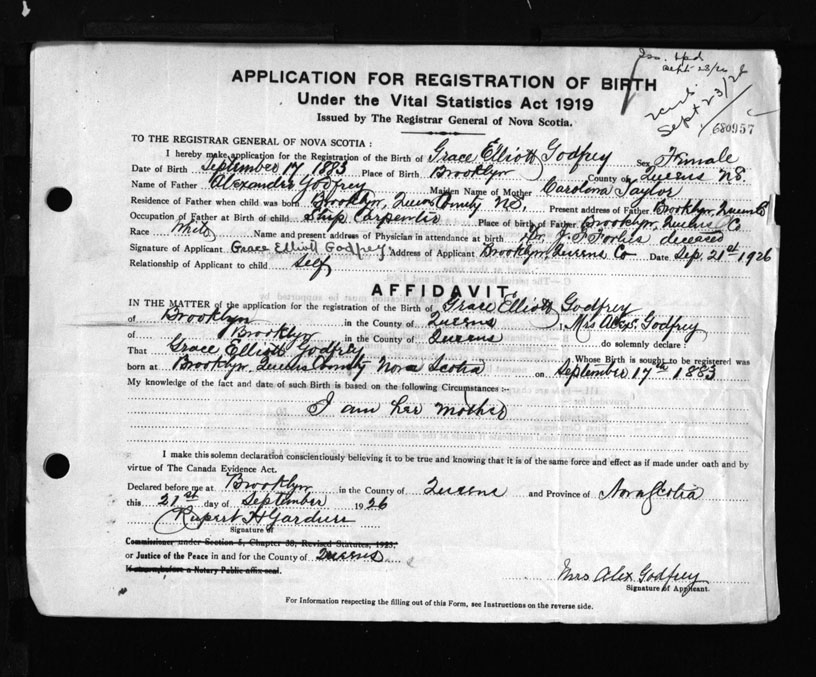 Sept 23/26
Sept 23/26
680957
APPLICATION FOR REGISTRATION OF BIRTH
Under the Vital Statistics Act 1919
Issued by The Registrar General of Nova Scotia.
TO THE REGISTRAR GENERAL OF NOVA SCOTIA :
I hereby make application for the Registration of the Birth of Grace Elliott Godfrey Sex Female
Date of Birth September 17, 1883 Place of Birth Brooklyn County of Queens N.S.
Name of Father Alexander Godfrey Maiden Name of Mother Taylor
Residence of Father when child was born Brooklyn, Queens County N.S. Present address of Father Brooklyn, Queens Co
Occupation of Father at Birth of child Ship Carpenter Place of birth of Father Brooklyn, Queens Co
Race White Name and present address of Physician in attendance at birth Dr. deceased
Signature of Applicant Grace Elliott Godfrey, Address of Applicant Brooklyn, Queens Co Date Sep. 21st 1926
Relationship of Applicant to child Self
AFFIDAVIT
IN THE MATTER of the application for the registration of the Birth of Grace Elliott Godfrey
of Brooklyn in the County of Queens , Mrs Alex. Godfrey
of Brooklyn in the County of Queens do solemnly declare :
That Grace Elliott Godfrey Whose Birth is sought to be registered was
born at Brooklyn, Queens County Nova Scotia on September 17th 1883
My knowledge of the fact and date of such Birth is based on the following Circumstances :-
I am her mother
I make this solemn declaration conscientiously believing it to be true and knowing that it is of the same force and effect as if made under oath and by
virtue of The Canada Evidence Act.
Declared before me at Brooklyn in the County of Queens and Province of Nova Scotia
this 21st day of September 1926
Rupert H Gardner
Signature of
Commissioner under Section 5, Chapter 38, Revised Statutes, 1923.
or Justice of the Peace in and for the County of Queens
If sworn before a Notary Public affix seal.
Mrs Alex Godfrey
Signature of Applicant.
For Information respecting the filling out of this Form, see Instructions on the reverse side.